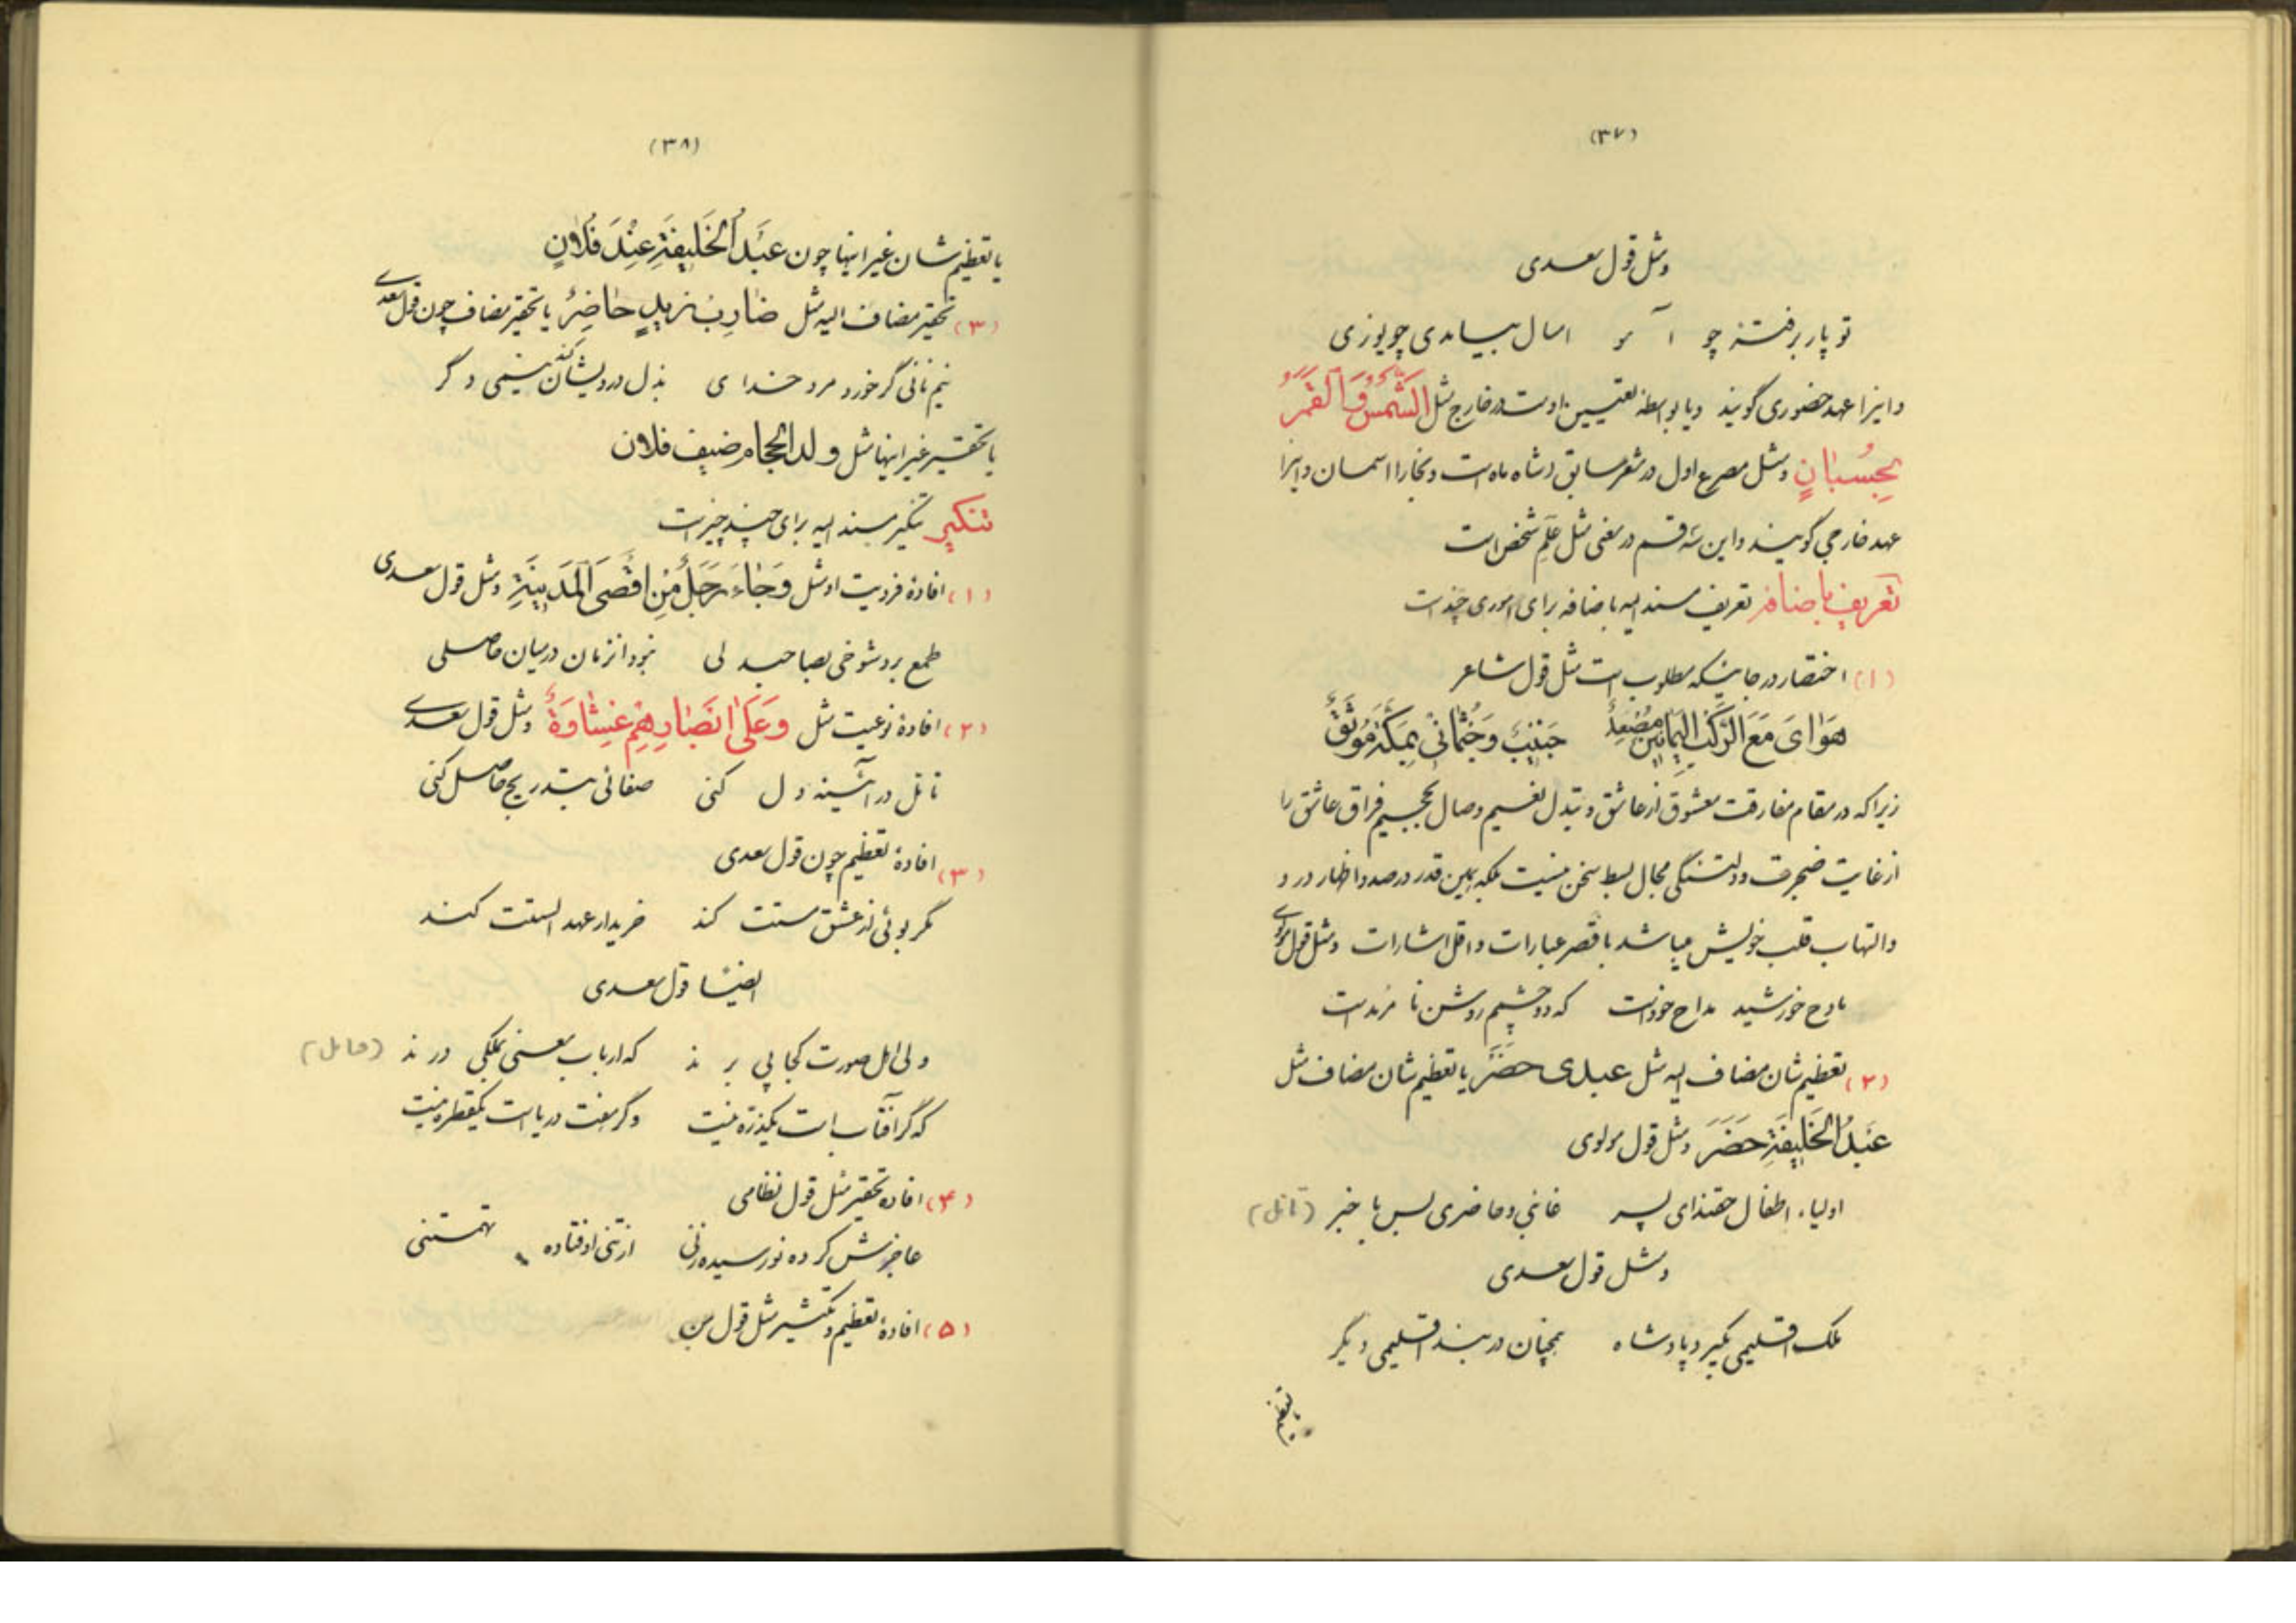 (۳۷)
ومثل قول سعدی
تو پار برفتهٔ چو آ مو امسال بیامدی چو یوزی
واینرا عهد حضوری گویند ویا بواسطه تعیین اوست در خارج مثل الشَّمسُ وَالقَمَرُ
بِحُسبانٍ ومثل مصرع اول در شعر سابق (شاه ماه است وبخارا اسمان واینرا
عهد خارجی گویند واین سه قسم در معنی مثل عَلَمِ شخص است
تعریف باضافه تعریف مسند الیه باضافه برای اموری چند است
(۱) اختصار در جائیکه مطلوب است مثل قول شاعر
هَوَایَ مَعَ الرَّکبِ الیَمانینَ مُصعِدٌ جَنیبٌ وَجُثمانی بِمَکَّةَ مُوثَقٌ
زیرا که در مقام مفارقت معشوق از عاشق وتبدل نعیم وصال بجحیم فراق عاشق را
از غایت ضجرت ودلتنگی مجال بسط سخن نیست بلکه بهمین قدر در صدد اظهار درد
والتهاب قلب خویش میباشد باقصر عبارات واقل اشارات ومثل قول مولوی
مادح خورشید مداح خود است که دو چشمم روشن نا مرمد است
(۲) تعظیم شان مضاف الیه مثل عبدی حضَرَ یا تعظیم شان مضاف مثل
عَبدُ الخَلیفَةِ حَضَرَ ومثل قول مولوی
اولیاء اطفال حقند ای پسر غائبی وحاضری بس با خبر (تامل)
ومثل قول سعدی
ملک اقلیمی بگیرد پادشاه همچنان در بند اقلیمی دیگر
یا تعظیم
(۳۸)
یا تعظیم شان غیر اینها چون عَبدُ الخَلیفَةِ عِندَ فُلانٍ
(۳) تحقیر مضاف الیه مثل ضارِبُ زیدٍ حاضِرٌ یا تحقیر مضاف چون قول سعدی
نیم نانی گر خورد مرد خدا ی بذل درویشان کند نیمی د گر
یا تحقیر غیر اینها مثل ولد الحجام ضیف فلان
تنکیر تنکیر مسند الیه برای چند چیز است
(۱) افادهٔ فردیت او مثل وَجاءَ رَجُلٌ مِن اَقصَی المَدینَةِ ومثل قول سعدی
طمع برد شوخی بصاحبد لی نبود انزمان در میان حاصلی
(۲) افادهٔ نوعیت مثل وَعَلی اَبصارِهِم غِشاوَةٌ ومثل قول سعدی
تامل در آئینه د ل کنی صفائی بتدریج حاصل کنی
(۳) افادهٔ تعظیم چون قول سعدی
مگر بوئی از عشق مستت کند خریدار عهد الستت کند
ایضًا قول سعدی
ولی اهل صورت کجا پی بر ند که ارباب معنی بملکی در ند (حامل)
که گر افتاب است یکذره نیست وگر هفت دریاست یکقطره نیست
(۴) افاده تحقیر مثل قول نظامی
عاجزش کرده نورسیده زنی از تنی اوفتاده تهمتنی
(۵) افادهٔ تعظیم وتکثیر مثل قول من